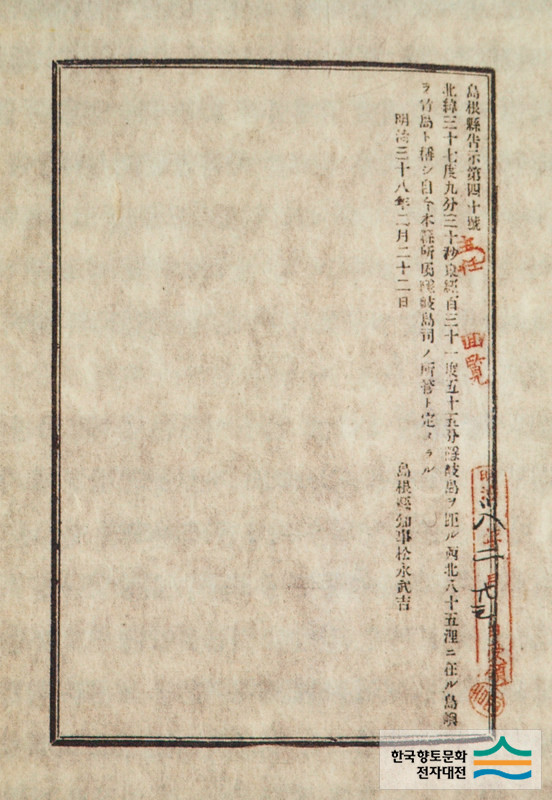 島根縣告示第四十號
北緯三十七度九分三十秒東經百三十一度五十五分隱岐島ヲ距ル西北八十五浬ニ在ル島嶼
ヲ竹島ト稱シ自今本縣所屬隱岐島司ノ所管ト定メラル
明治三十八年二月二十二日
島根縣知事松永武吉
主任
回覽
한국향토문화
전자대전